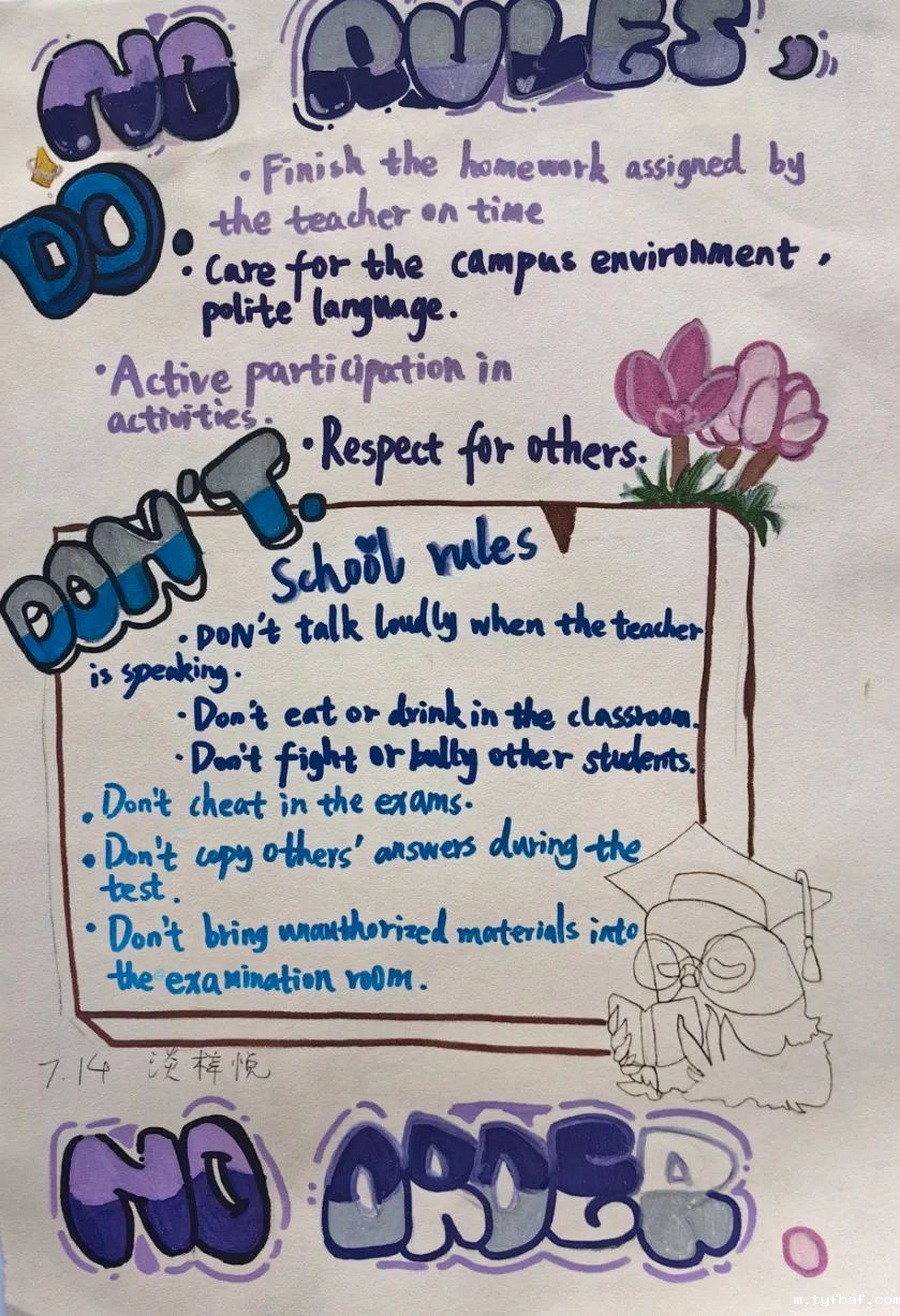 NO RULES,
• Finish the homework assigned by
the teacher on time
DO.
• Care for the campus environment,
polite language.
• Active participation in
activities.
• Respect for others.
DON'T.
School rules
• DON't talk loudly when the teacher
is speaking.
• Don't eat or drink in the classroom.
• Don't fight or bully other students.
• Don't cheat in the exams.
• Don't copy others' answers during the
test.
• Don't bring unauthorized materials into
the examination room.
7.14 淡梓悦
NO ORDER
m.tyfbaf.com